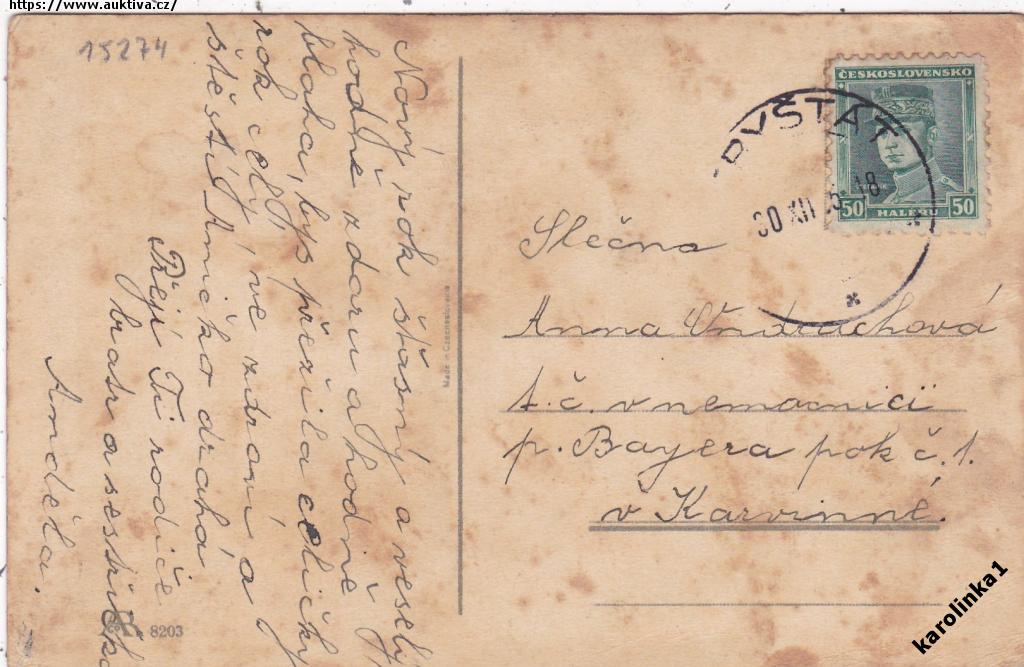 https://www.auktiva.cz/
15274
Nový rok šťasný a veselý
hodně zdaru a hodně
blaha, bys přežila celičký
rok celý, ve zdraví a
štěstí Aničko drahá
Přejí Ti rodiče
bratr a sestřička
Anděla.
Made in Czechoslovakia
8203
ČESKOSLOVENSKO
50 HALÉŘŮ 50
RYŠTÁT
30 XII 5-18
Slečna
Anna Vondrachová
t. č. v nemocnici
p. Bayera pok č. 1.
v Karvinné.
karolinka1